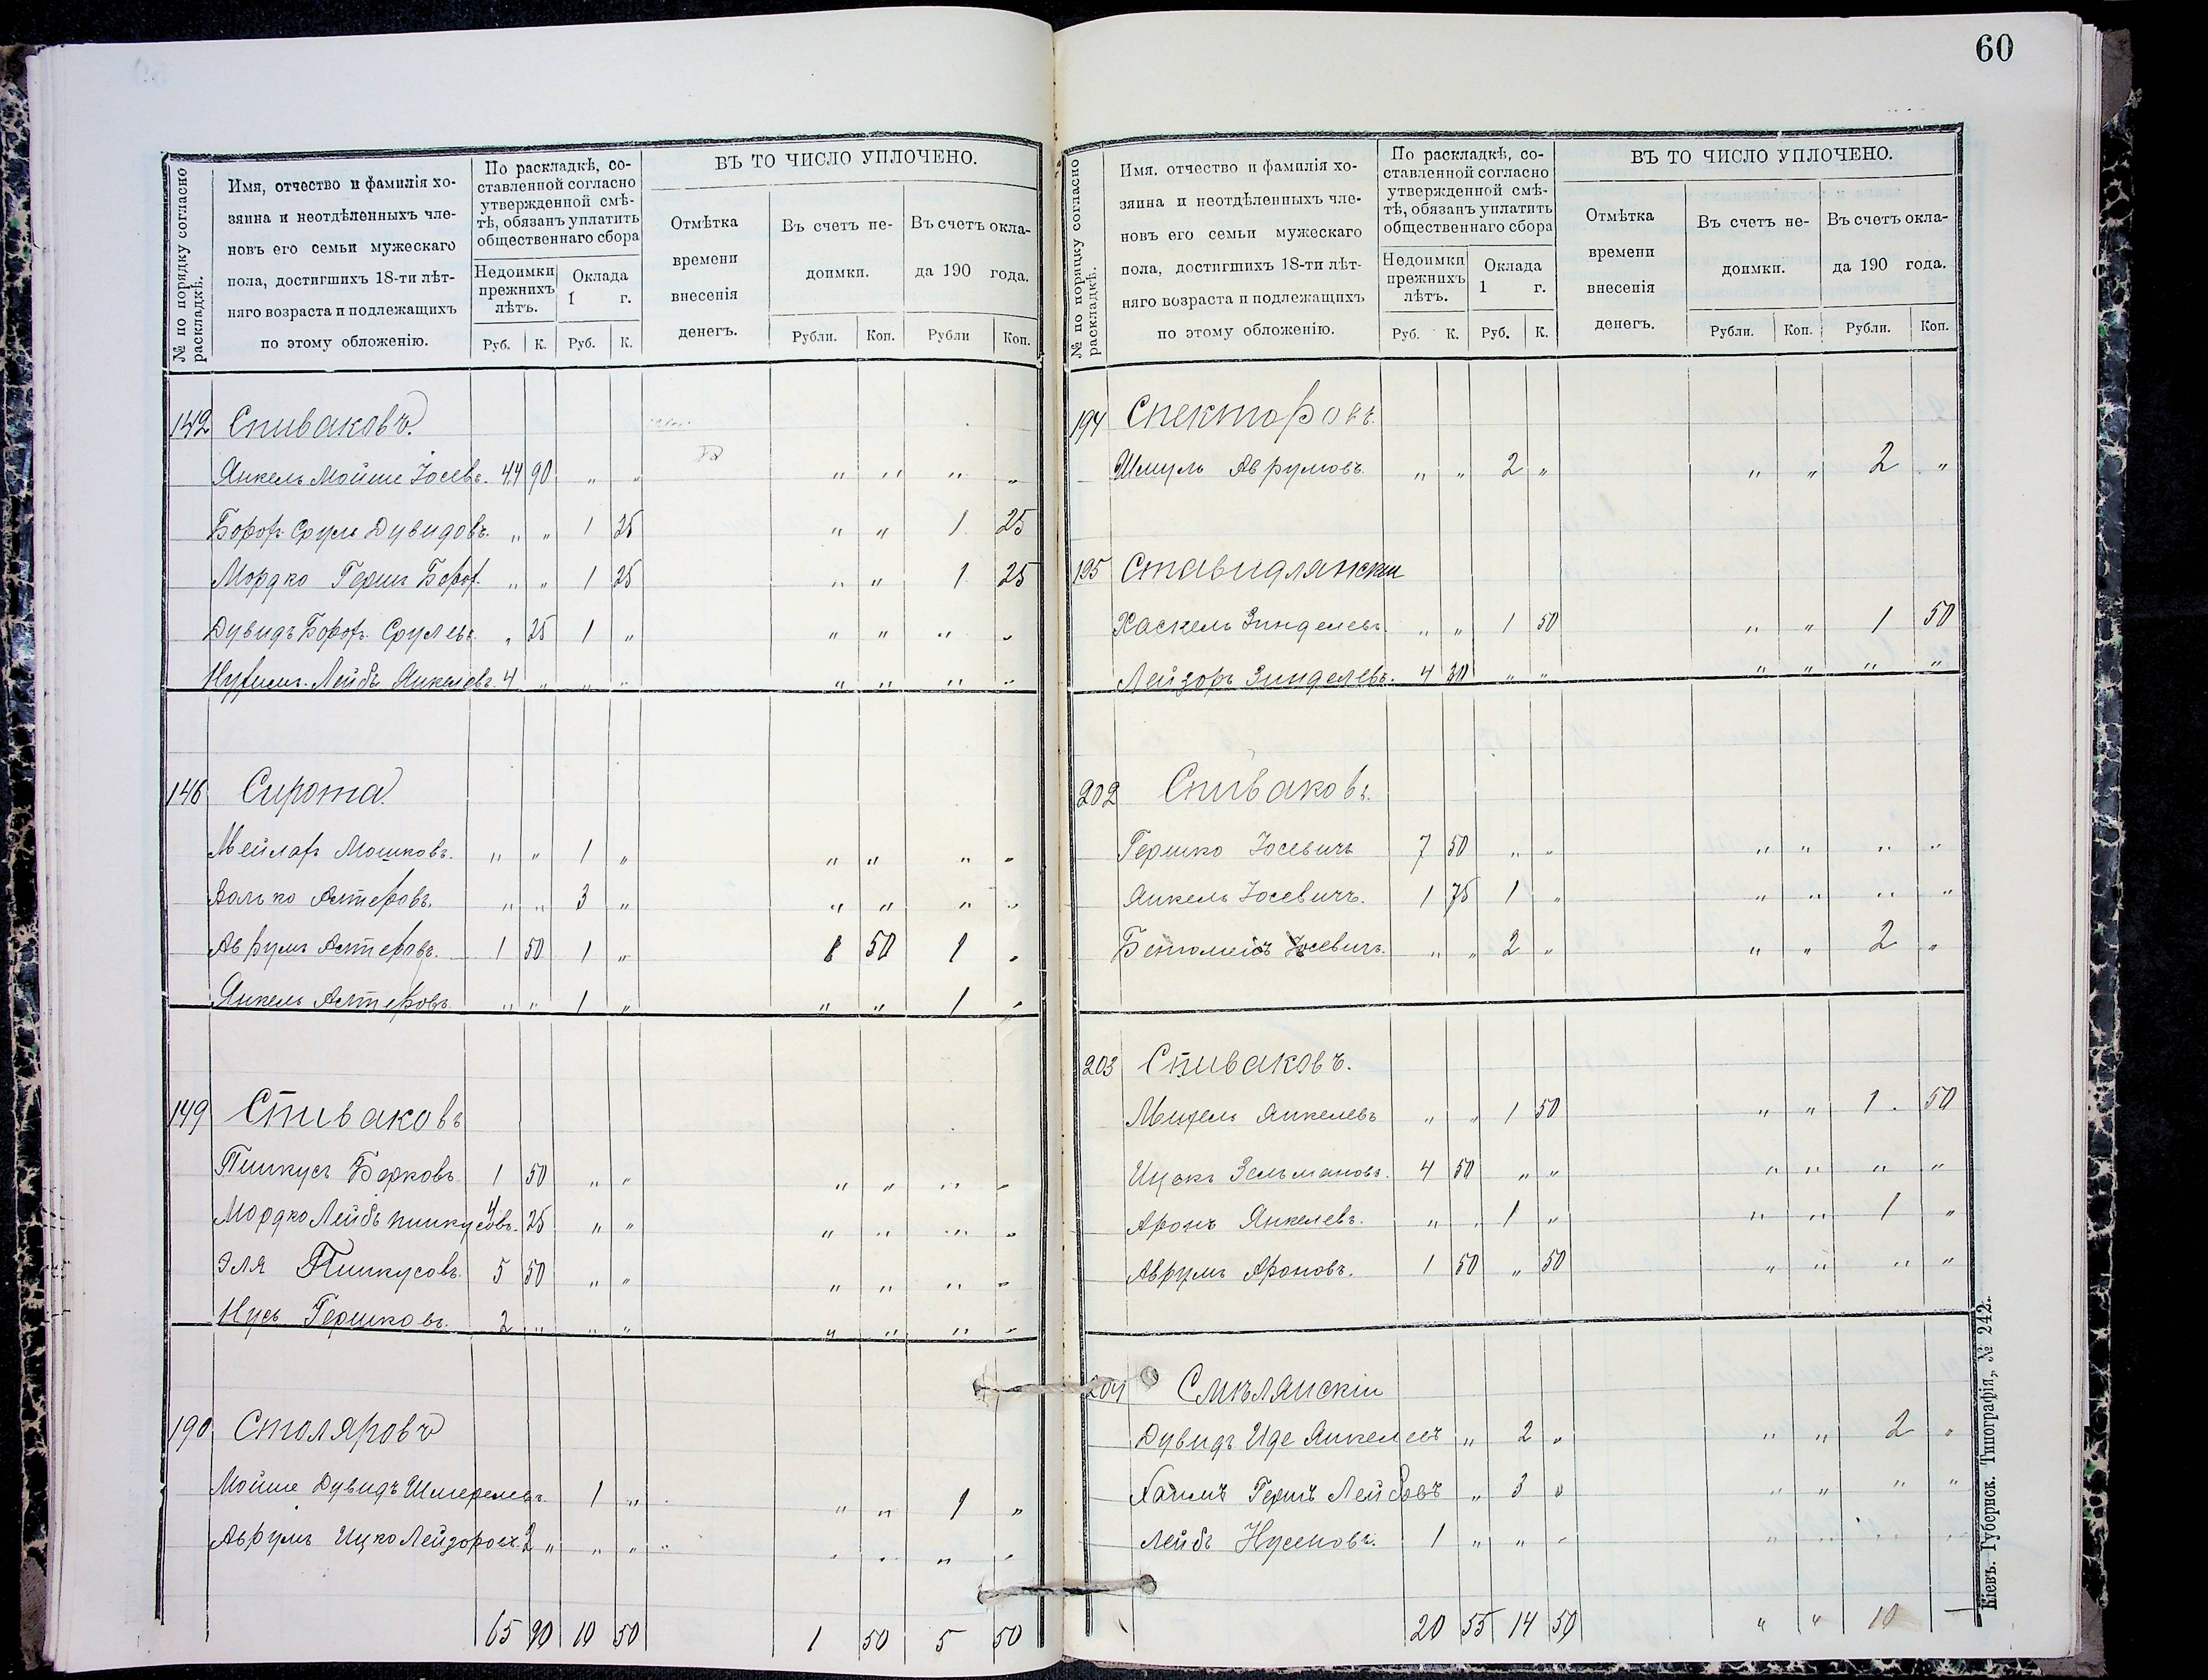 60
№ по порядку согласно раскладкѣ.
Имя, отчество и фамилія хо-
зяина и неотдѣленныхъ чле-
новъ его семьи мужескаго
пола, достигшихъ 18-ти лѣт-
няго возраста и подлежащихъ
по этому обложенію.
По раскладкѣ, со-
ставленной согласно
утвержденной смѣ-
тѣ, обязанъ уплатить
общественнаго сбора
Недоимки прежнихъ лѣтъ.
Оклада 1 г.
Руб. К. Руб. К.
ВЪ ТО ЧИСЛО УПЛОЧЕНО.
Отмѣтка
времени
внесенія
денегъ.
Въ счетъ не-
доимки.
Въ счетъ окла-
да 190 года.
Рубли. Коп. Рубли Коп.
142 Спиваковъ.
Янкель Мойше Іосевъ. 44 90 " " " " " "
Борох Сруль Дувидовъ. " " 1 25 " " 1 25
Мордко Герш Борох. " " 1 25 " " 1 25
Дувидъ Борох Срулевъ. " 25 1 " " " " "
Нухим. Лейбъ Янкелевъ. 4 " " " " " " "
146 Сирота.
Мейлах Мошковъ. " " 1 " " " " "
Валько Алтеровъ. " " 3 " " " " "
Аврумъ Алтеровъ. 1 50 1 " 1 50 1 "
Янкель Алтеровъ " " 1 " " " 1 "
149 Спиваковъ
Пинкусъ Берковъ 1 50 " " " " " "
Мордко Лейбъ Пинкусовъ. 4 25 " " " " " "
Эля Пинкусовъ. 5 50 " " " " " "
Нусь Гершковъ. 2 " " " " " " "
190 Столяровъ
Мойше Дувидъ Шмерелевъ. 1 " " " 1 "
Аврумъ Ицко Лейзоров. 2 " " " " " " "
65 90 10 50 1 50 5 50
№ по порядку согласно раскладкѣ.
Имя. отчество и фамилія хо-
зяина и неотдѣленныхъ чле-
новъ его семьи мужескаго
пола, достигшихъ 18-ти лѣт-
няго возраста и подлежащихъ
по этому обложенію.
По раскладкѣ, со-
ставленной согласно
утвержденной смѣ-
тѣ, обязанъ уплатить
общественнаго сбора
Недоимки прежнихъ лѣтъ.
Оклада 1 г.
Руб. К. Руб. К.
ВЪ ТО ЧИСЛО УПЛОЧЕНО.
Отмѣтка
времени
внесенія
денегъ.
Въ счетъ не-
доимки.
Въ счетъ окла-
да 190 года.
Рубли. Коп. Рубли. Коп.
194 Спекторовъ.
Шмуль Аврумовъ " " 2 " " " 2 "
195 Ставидлянскій
Хаскель Зинделевъ. " " 1 50 " " 1 50
Лейзоръ Зинделевъ. 4 30 " " " " " "
202 Спиваковъ.
Гершко Іосевичъ 7 50 " " " " " "
Янкель Іосевичъ. 1 75 1 " " " " "
Іосевичъ. " " 2 " " " 2 "
203 Спиваковъ.
Михель Янкелевъ " " 1 50 " " 1 50
Ицокъ Зельмановъ. 4 50 " " " " " "
Аронъ Янкелевъ. " " 1 " " " 1 "
Аврумъ Ароновъ. 1 50 " 50 " " " "
204 Смѣлянскій
Дувидъ Иде Янкелевъ " 2 " " " 2 "
Хаимъ Гершъ Лейбовъ " 3 " " " " "
Лейбъ Нусеновъ. 1 " " " " " " "
20 55 14 50 " " 10 —
Кіевъ. Губернск. Типографія, № 242.